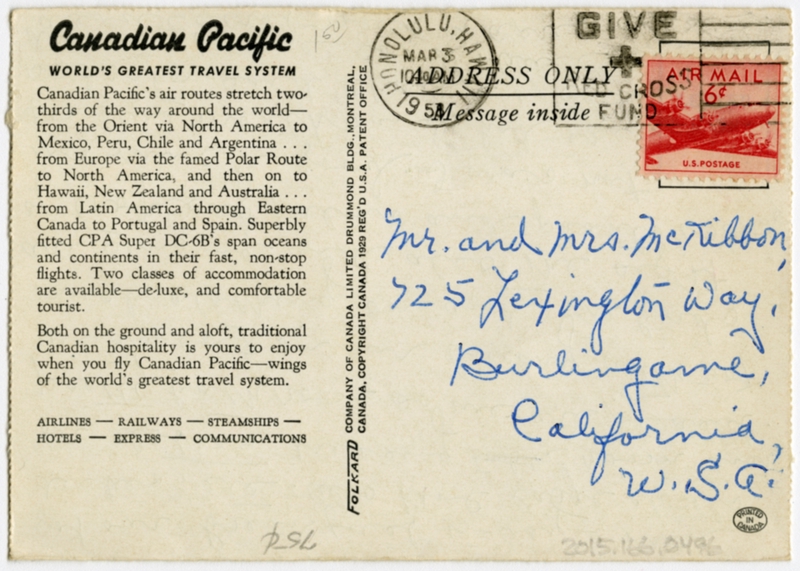 Canadian Pacific
WORLD'S GREATEST TRAVEL SYSTEM
Canadian Pacific's air routes stretch two-
thirds of the way around the world—
from the Orient via North America to
Mexico, Peru, Chile and Argentina . . .
from Europe via the famed Polar Route
to North America, and then on to
Hawaii, New Zealand and Australia . . .
from Latin America through Eastern
Canada to Portugal and Spain. Superbly
fitted CPA Super DC-6B's span oceans
and continents in their fast, non-stop
flights. Two classes of accommodation
are available—de-luxe, and comfortable
tourist.
Both on the ground and aloft, traditional
Canadian hospitality is yours to enjoy
when you fly Canadian Pacific—wings
of the world's greatest travel system.
AIRLINES — RAILWAYS — STEAMSHIPS —
HOTELS — EXPRESS — COMMUNICATIONS
75¢
150
FOLKARD COMPANY OF CANADA LIMITED DRUMMOND BLDG., MONTREAL,
CANADA, COPYRIGHT CANADA 1929 REG'D U.S.A. PATENT OFFICE
HONOLULU, HAWAII
MAR 3
GIVE
RED CROSS
FUND
ADDRESS ONLY
Message inside
AIR MAIL
6¢
U.S. POSTAGE
Mr. and Mrs. McKibbon,
725 Lexington Way,
Burlingame,
California,
U.S.A.
PRINTED
IN
CANADA
2015.166.0496